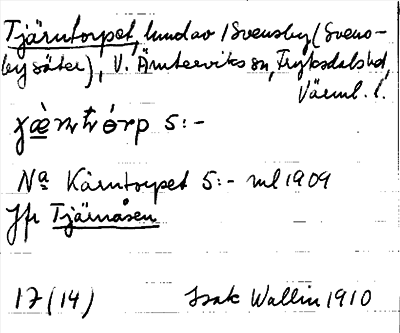 Tjärntorpet, lund av /Svensby (Svens-
bysäter), V. Ämterviks sn, Fryksdals hd,
Värml. l.
5:-
Na Kärntorpet 5:- ml 1909
Jfr Tjärnåsen
17 (14) Isak Wallin 1910